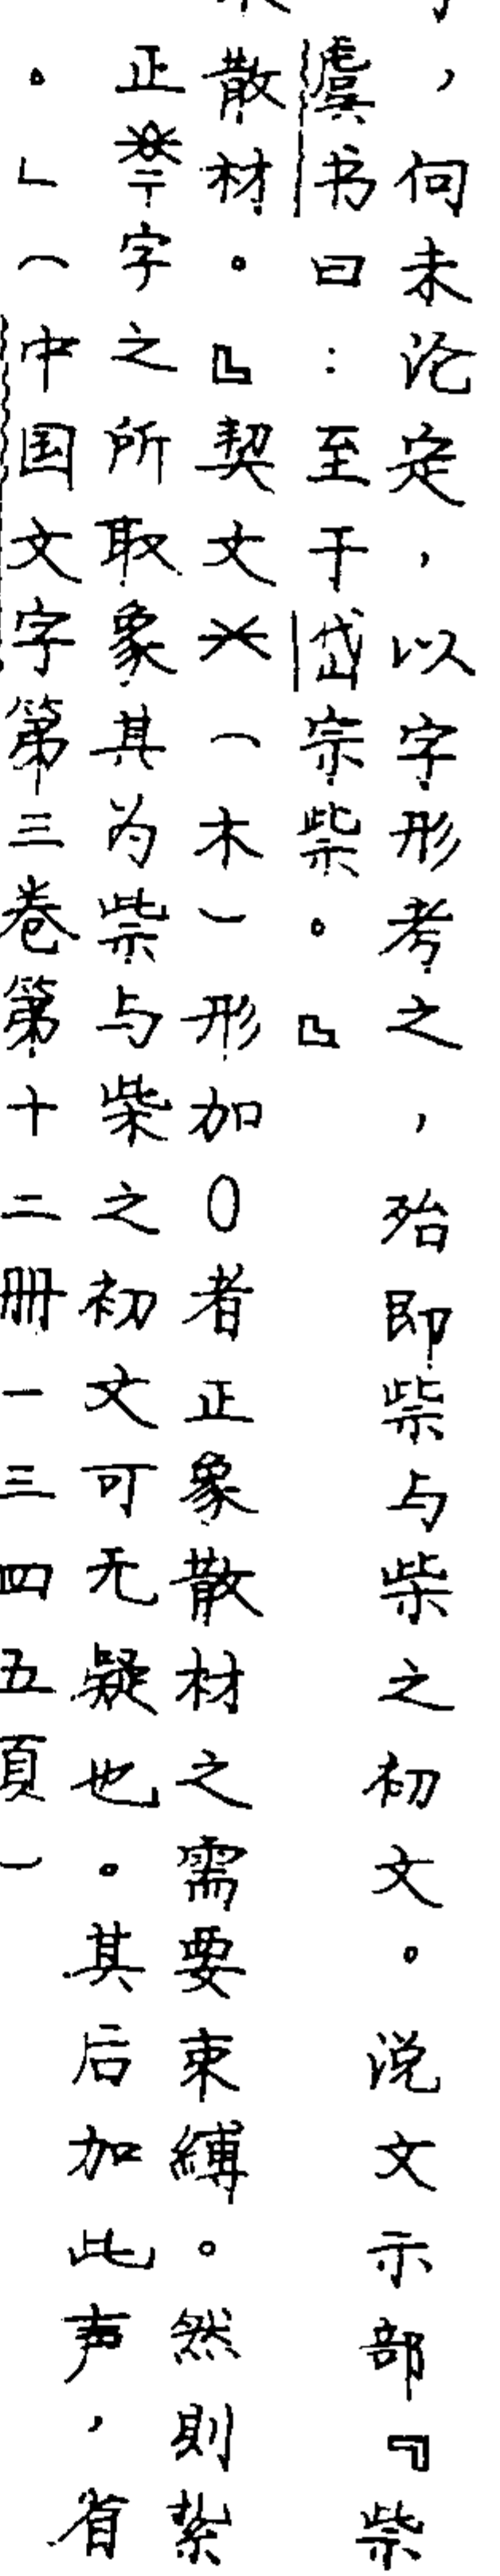 ，何未论定，以字形考之，殆即祡与柴之初文。说文示部『祡
虞书曰：至于岱宗祡。』
散材。』契文（木）形加〇者正象散材之需要束縛。然則紮
正字之所取象其为祡与柴之初文可无疑也。其后加此声，省
。」（中国文字第三卷第十二册一三四五頁）